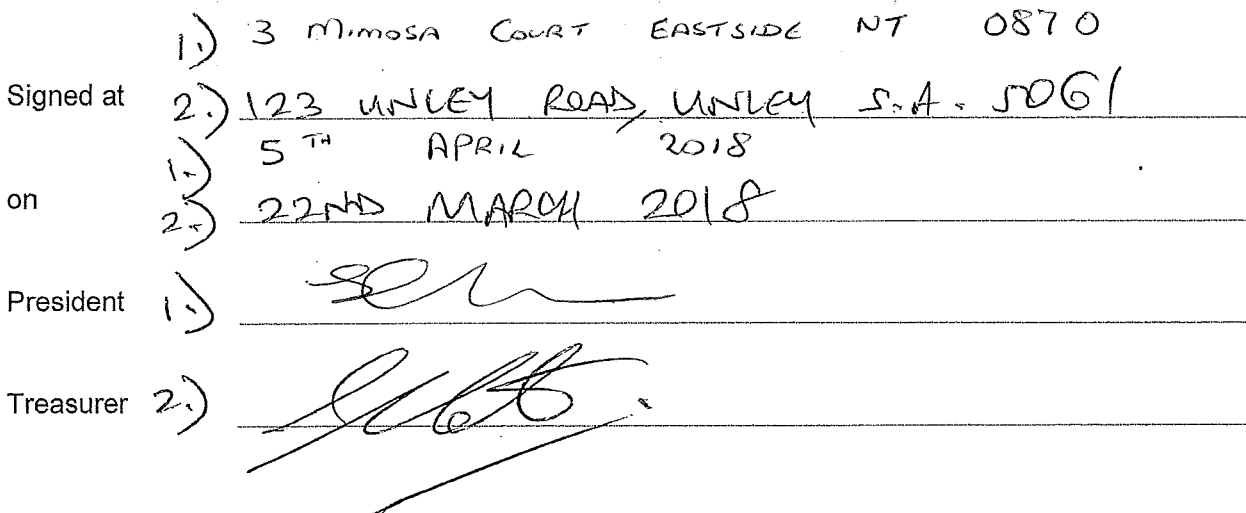 1.) 3 MIMOSA COURT EASTSIDE NT 0870
Signed at 2.) 123 UNLEY ROAD, UNLEY S.A. 5061
1.) 5TH APRIL 2018
on 2.) 22ND MARCH 2018
President 1.)
Treasurer 2.)